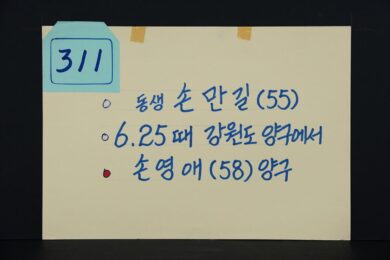 311
동생 손만길(55)
6.25때 강원도 양구에서
손영애(58)양구